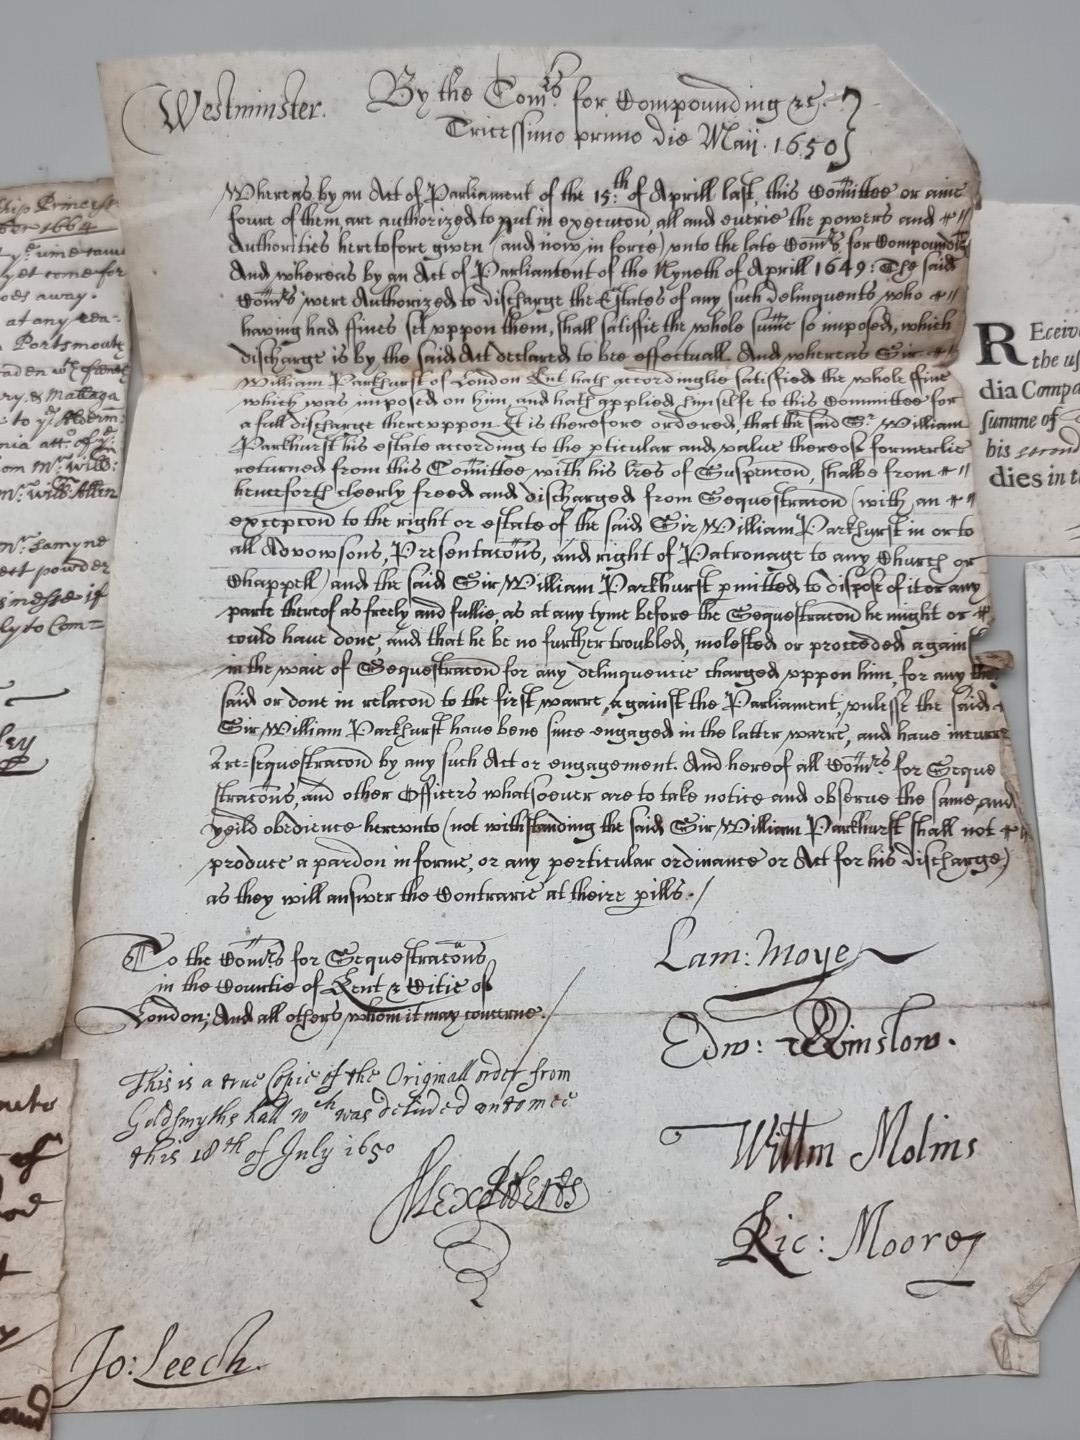 Westminster. By the Com:rs for Compounding &c.
Tricessimo primo die Maij. 1650
Whereas by an Act of Parliament of the 15:th of Aprill last, this Comittee or anie
foure of them are authorized to put in execucon, all and euerie the powers and
Authorities heretofore given (and now in force) vnto the late Com:rs for Compound
And whereas by an Act of Parliament of the Nyneth of Aprill 1649: The said
Com:rs were Authorized to discharge the Estates of any such delinquents who
having had ffines set vppon them, shall satisfie the whole sume so imposed, which
discharge is by the said Act declared to bee effectuall And whereas Sir
William Parkhurst of London Knt hath accordinglie satisfied the whole ffine
which was imposed on him, and hath applied himselfe to this Committee for
a full discharge therevppon It is therefore ordered, that the said Sr. William
Parkhurst his estate according to the pticular and value thereof formerlie
returned from this Comittee with his lres of Suspencon, shalbe from
henceforth cleerly freed and discharged from Sequestracon (with an
excepcon to the right or estate of the said Sir William Parkhurst in or to
all Advowsons, Presentacons, and right of Patronage to any Church or
Chappell) and the said Sir William Parkhurst pmitted to dispose of it or any
parte thereof as freely and fullie, as at any tyme before the Sequestracon he might or
could have done, and that he be no further troubled, molested or proceeded again
in the waie of Sequestracon for any delinquencie charged vppon him, for any
said or done in relacon to the first warre against the Parliament, vnlesse the said
Sir William Parkhurst have bene since engaged in the latter warre, and have incurre
a re-sequestracon by any such Act or engagement. And hereof all Com:rs for Seque
stracons, and other Officers whatsoever are to take notice and observe the same, and
yeild obedience herevnto (not withstanding the said Sir William Parkhurst shall not
produce a pardon in forme, or any perticular ordinance or Act for his discharge)
as they will answer the Contrarie at theire pills.
To the Com:rs for Sequestracons
in the Countie of Kent & Citie of
London; And all others whom it may concerne.
This is a true Copie of the Originall order from
Goldsmyths hall wch was deliued vnto mee
this 18th of July 1650
Alex Roberts
Lam: Moyer
Edw: Winslow.
Willm Molins
Ric: Moore
Jo: Leech.
ber 1664
at any
Portsmouth
& Mallaga
Mr. Will: Allen
powder
ly to Com=
REceiv
the us
dia Compa
summe of
bis second
dies in t
of